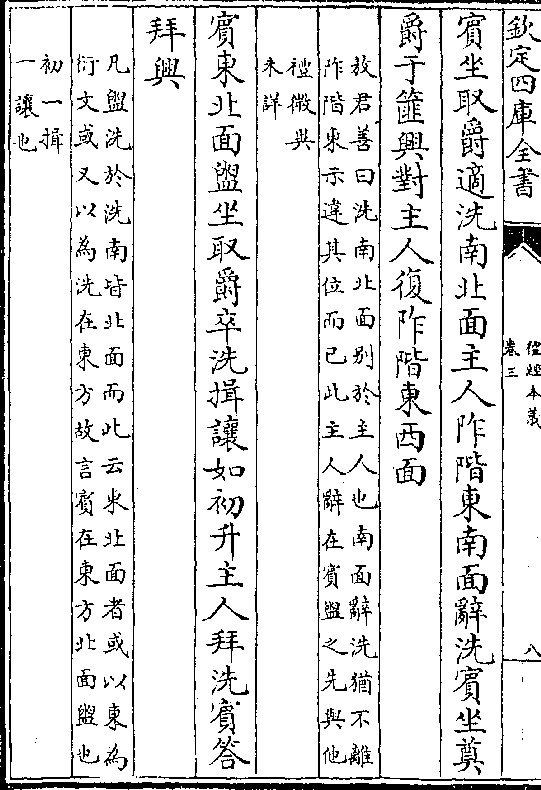 欽定四庫全書
禮經本義
卷三
八
賓坐取爵適洗南北面主人阼階東南面辭洗賓坐奠
爵于篚興對主人復阼階東西面
敖君善曰洗南北面别於主人也南面辭洗猶不離
阼階東示違其位而已此主人辭在賓盥之先與他
禮微異
未詳
賓東北面盥坐取爵卒洗揖讓如初升主人拜洗賓答
拜興
凡盥洗於洗南皆北面而此云東北面者或以東為
衍文或又以為洗在東方故言賓在東方北面盥也
初一揖
一讓也